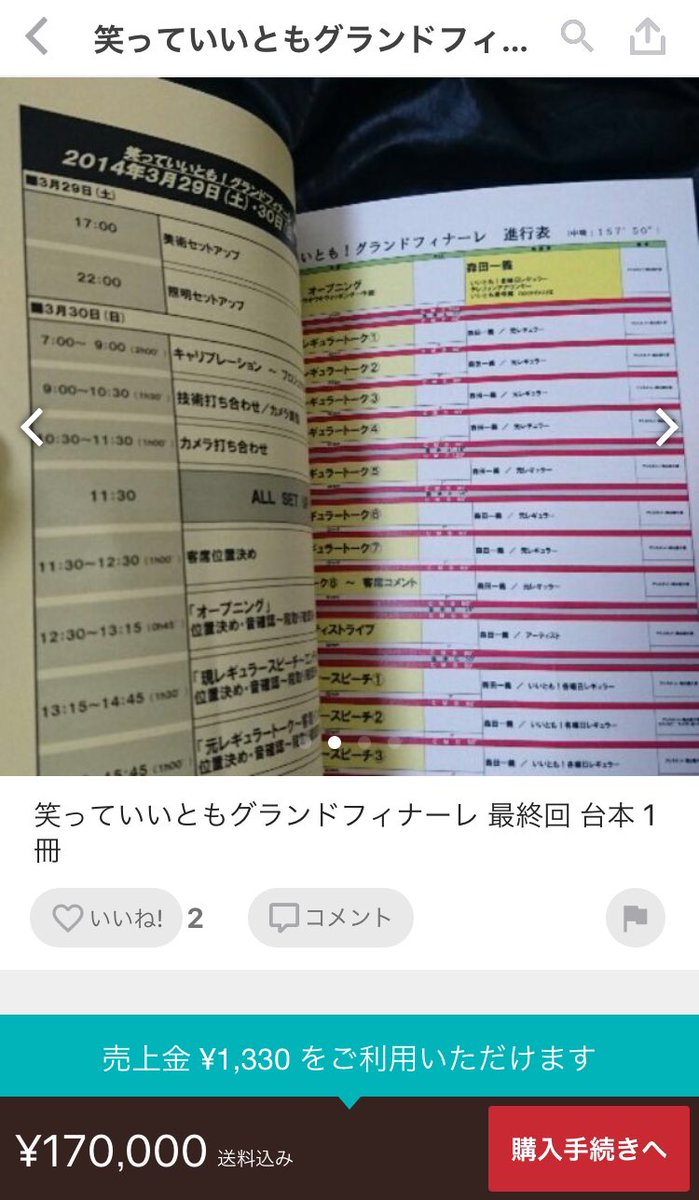 笑っていいともグランドフィ...
笑っていいとも！グランドフィナーレ
2014年3月29日(土)・30日
■3月29日(土)
17:00
美術セットアップ
22:00
照明セットアップ
■3月30日(日)
7:00～ 9:00
キャリブレーション ～ プロジェ
9:00～10:30
技術打ち合わせ/カメラ
0:30～11:30
カメラ打ち合わせ
11:30
ALL SET U
11:30～12:30
客席位置決め
12:30～13:15
「オープニング」
位置決め・音確認～段取り確認
13:15～14:45
「現レギュラースピーチ～エンデ
位置決め・音確認～段取り確認
15:45
「元レギュラートーク～
位置決め・音確認～段取り
いとも！グランドフィナーレ 進行表
オープニング
森田一義
レギュラートーク①
森田一義 / 元レギュラー
ギュラートーク2
森田一義 / 元レギュラー
ギュラートーク3
森田一義 / 元レギュラー
ギュラートーク④
森田一義 / 元レギュラー
ギュラートーク5
森田一義 / 元レギュラー
ギュラートーク⑥
森田一義 / 元レギュラー
ギュラートーク⑦
森田一義 / 元レギュラー
ーク8 ～ 客席コメント
森田一義 / 元レギュラー
ティストライブ
森田一義 / アーティスト
ースピーチ①
森田一義 / いいとも！各曜日レギュラー
ースピーチ2
森田一義 / いいとも！各曜日レギュラー
ースピーチ3
森田一義 / いいとも！各曜日レギュラー
笑っていいともグランドフィナーレ 最終回 台本 1
冊
いいね! 2
コメント
売上金 ¥1,330 をご利用いただけます
¥170,000 送料込み
購入手続きへ